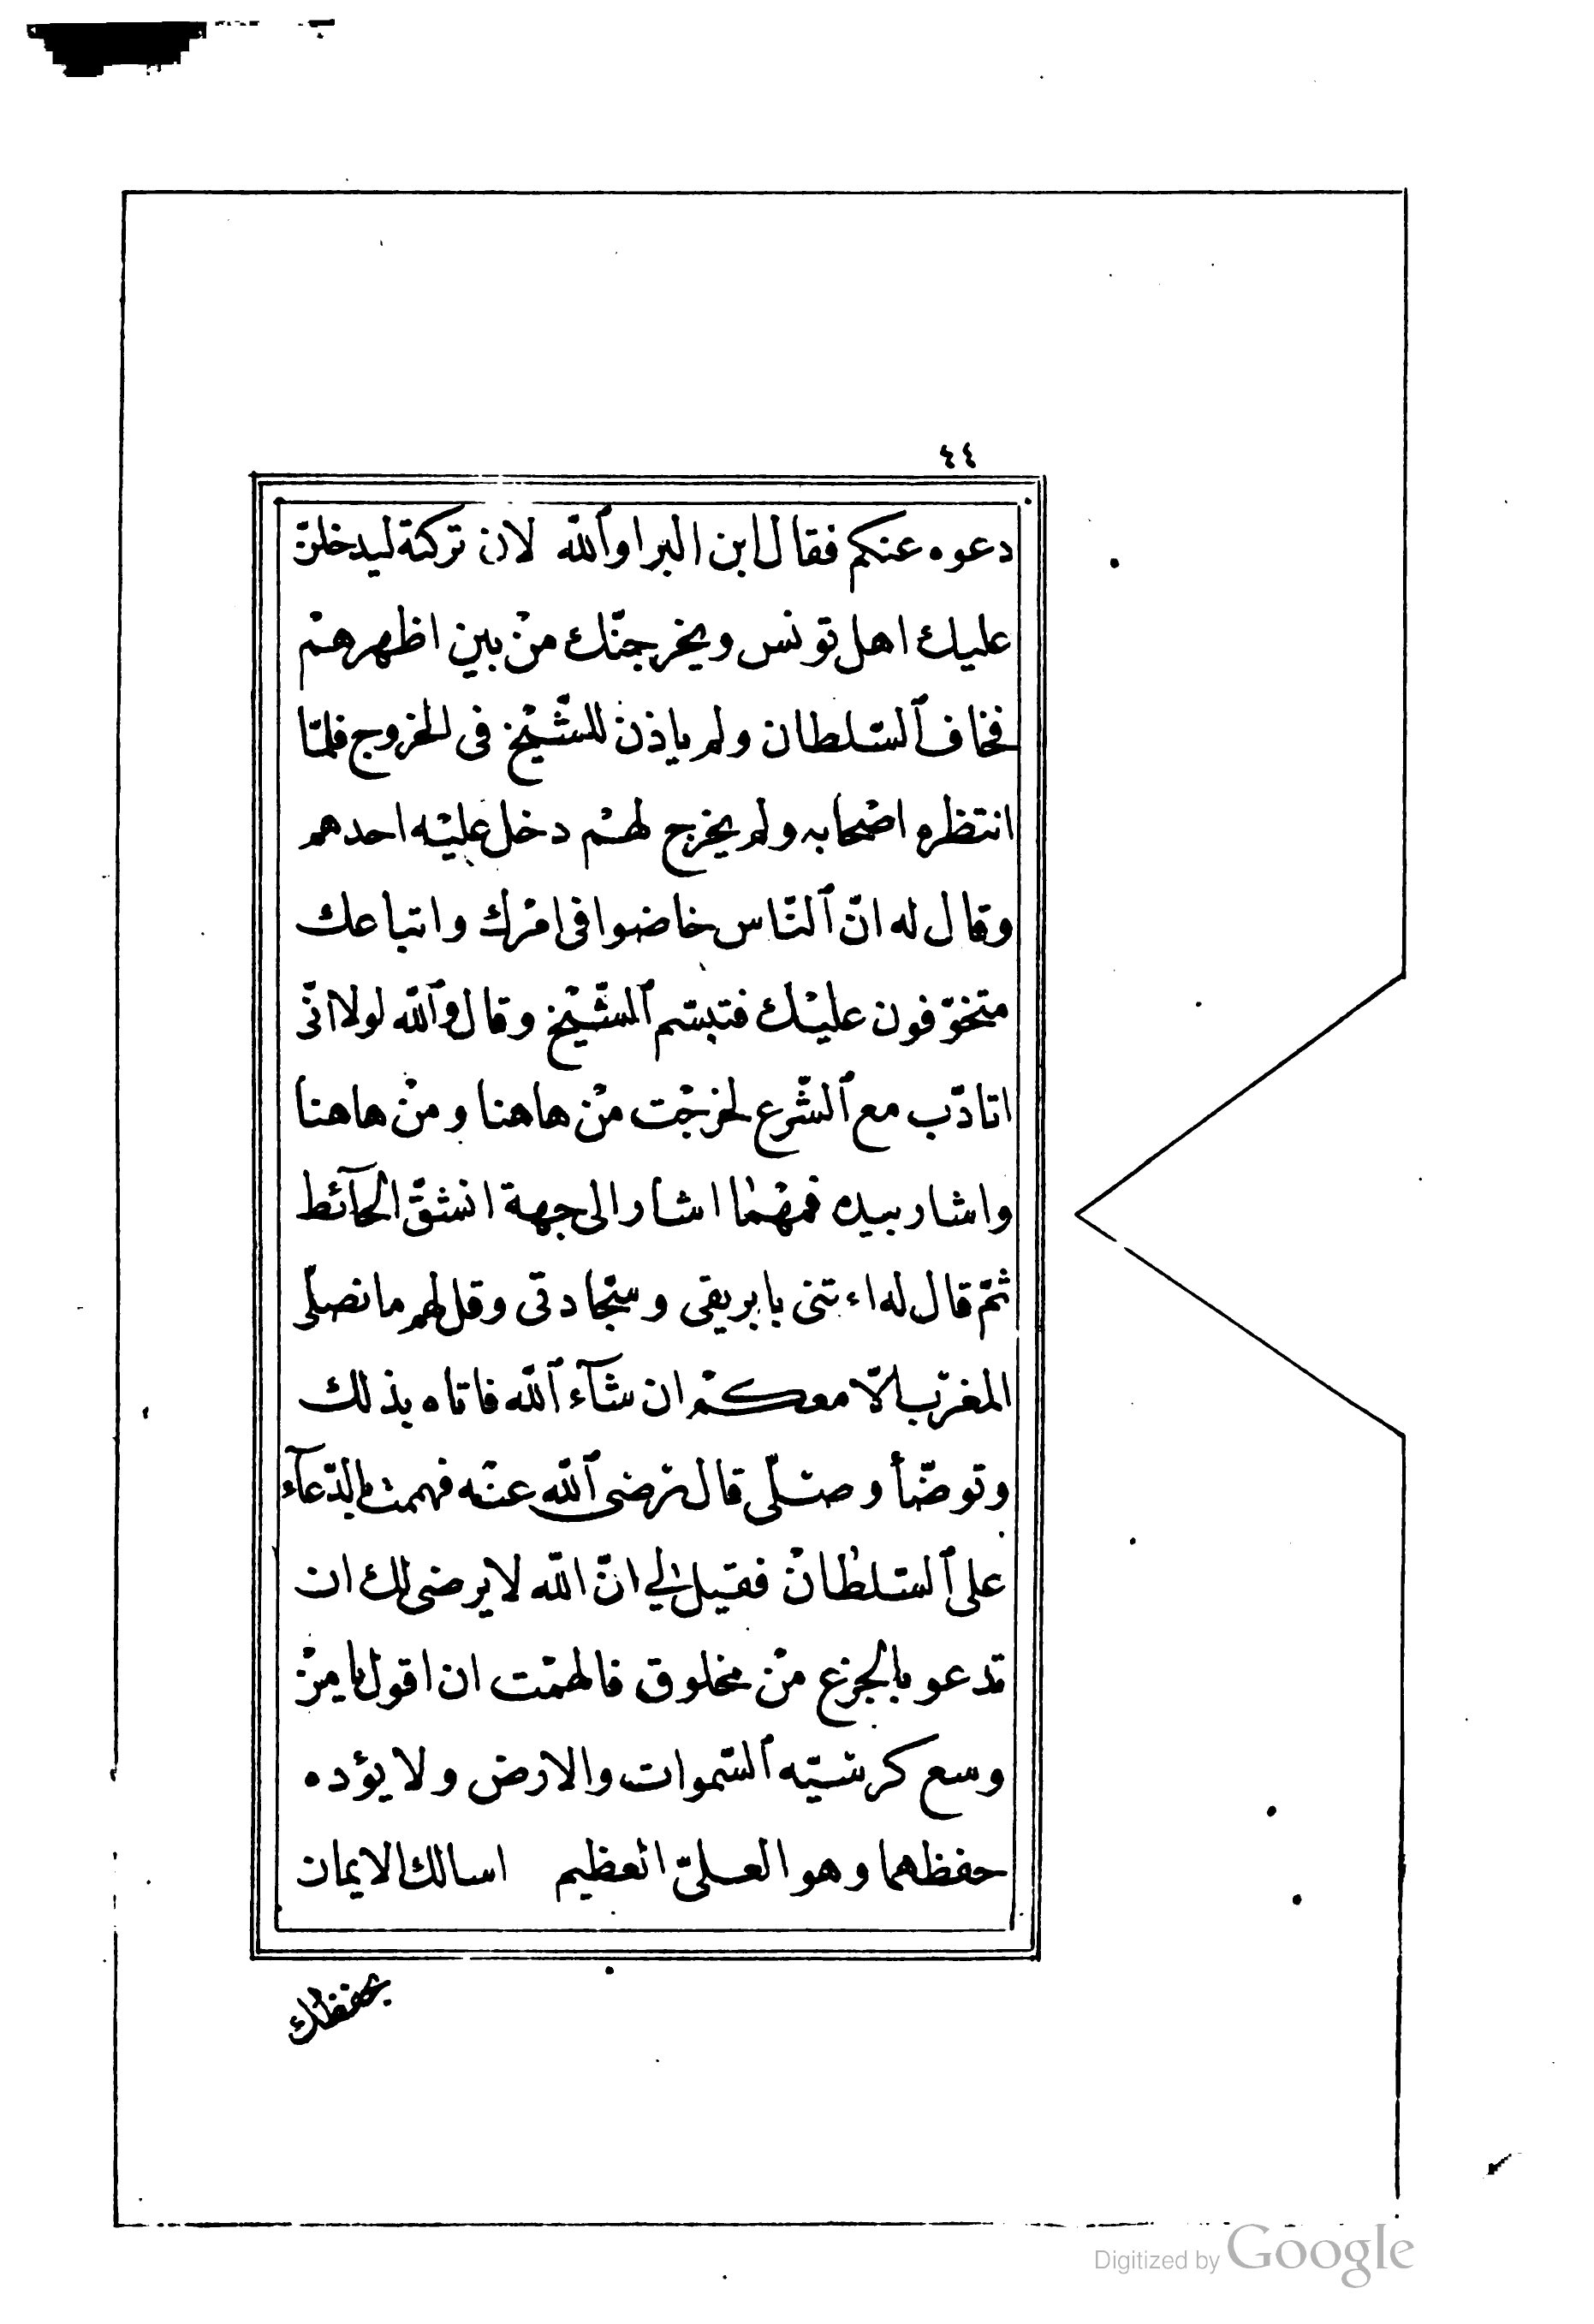 ٤٤
دعوه عنكم فقال ابن البراوٱللّه لان تركتة ليدخلنّ
عليك اهل تونس ويخرجنّك منْ بين اظهرهمْ
فخاف ٱلسّلطان ولم ياذنْ للشّيْخ فى الخروج فلمّا
انتظره اصْحابه ولم يخرج لهمْ دخل عليْه احدهم
وقال له انّ ٱلنّاس خاضوا فى امْرك واتباعك
متخوّفون عليْك فتبسّم ٱلشّيْخ وقال وٱللّه لولا انّى
اتادّب مع ٱلشّرع لخرجْت منْ هاهنا ومنْ هاهنا
واشار بيده فمهْما اشار الى جهة انشقّ الحآئط
ثمّ قال له اءتنى بابريقى وسجّادتى وقل لهم ما نصلّى
المغرب الّا معكمْ ان شآء ٱللّه فاتاه بذلك
وتوضّأ وصلّى قال رضى ٱللّه عنْه فهممت بالدّعآء
على ٱلسّلطانْ فقيل لي انّ اللّه لا يرضى لك ان
تدعو بالجزع منْ مخلوق فالهمْت ان اقول يا منْ
وسع كرسيّه ٱلسّموات والارض ولا يؤده
حفظهما وهو العلىّ العظيم اسالك الايمان
بحفظك
Digitized by Google